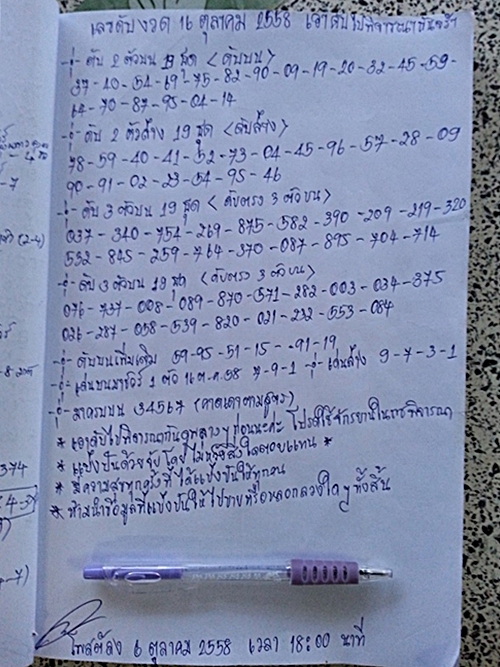 เลขดับงวด 16 ตุลาคม 2558 เอาดับไปพิจารณากันครับ
ดับ 2 ตัวบน 19 ชุด <ดับบน>
37-40-54-69-75-82-90-09-19-20-32-45-59-
64-70-87-95-04-14
ดับ 2 ตัวล่าง 19 ชุด <ดับล่าง>
78-59-40-41-52-73-04-45-96-57-28-09
90-91-02-23-54-95-46
ดับ 3 ตัวบน 19 ชุด <ดับตรง 3 ตัวบน>
037-340-754-269-875-582-390-209-219-320
532-845-259-764-370-087-895-704-714
ดับ 3 ตัวบน 19 ชุด <ดับตรง 3 ตัวบน>
076-737-008-089-870-571-282-003-034-375
026-287-058-539-820-021-232-553-084
ดับบนเพิ่มเติม 59-95-51-15-91-19
เด่นบน 1 ตัว 16 ต.ค.58 7-9-1 เด่นล่าง 9-7-3-1
มาครบบน 34567 (คาดเดาตามสูตร)
* เอาดับไปพิจารณากันดูพลางๆ ก่อนนะค่ะ โปรดใช้จักรยานในการพิจารณา
* แบ่งปันด้วยใจ โดยไม่หวังสิ่งใดตอบแทน *
* มีความสุขทุกครั้งที่ได้แบ่งปันให้ทุกคน
* ห้ามนำข้อมูลที่แบ่งปันให้ไปขายหรือหลอกลวงใดๆ ทั้งสิ้น
โพสต์ลง 6 ตุลาคม 2558 เวลา 18:00 นาที
-7
(2-4)
374
-7)